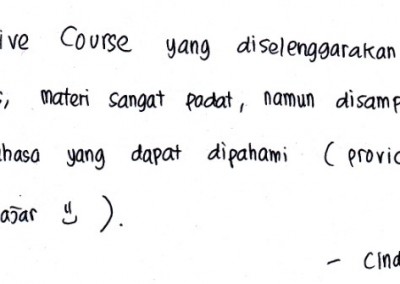 ive Course yang diselenggarakan
, materi sangat padat, namun disamp
hasa yang dapat dipahami ( provid
ajar ツ ).
- Cind